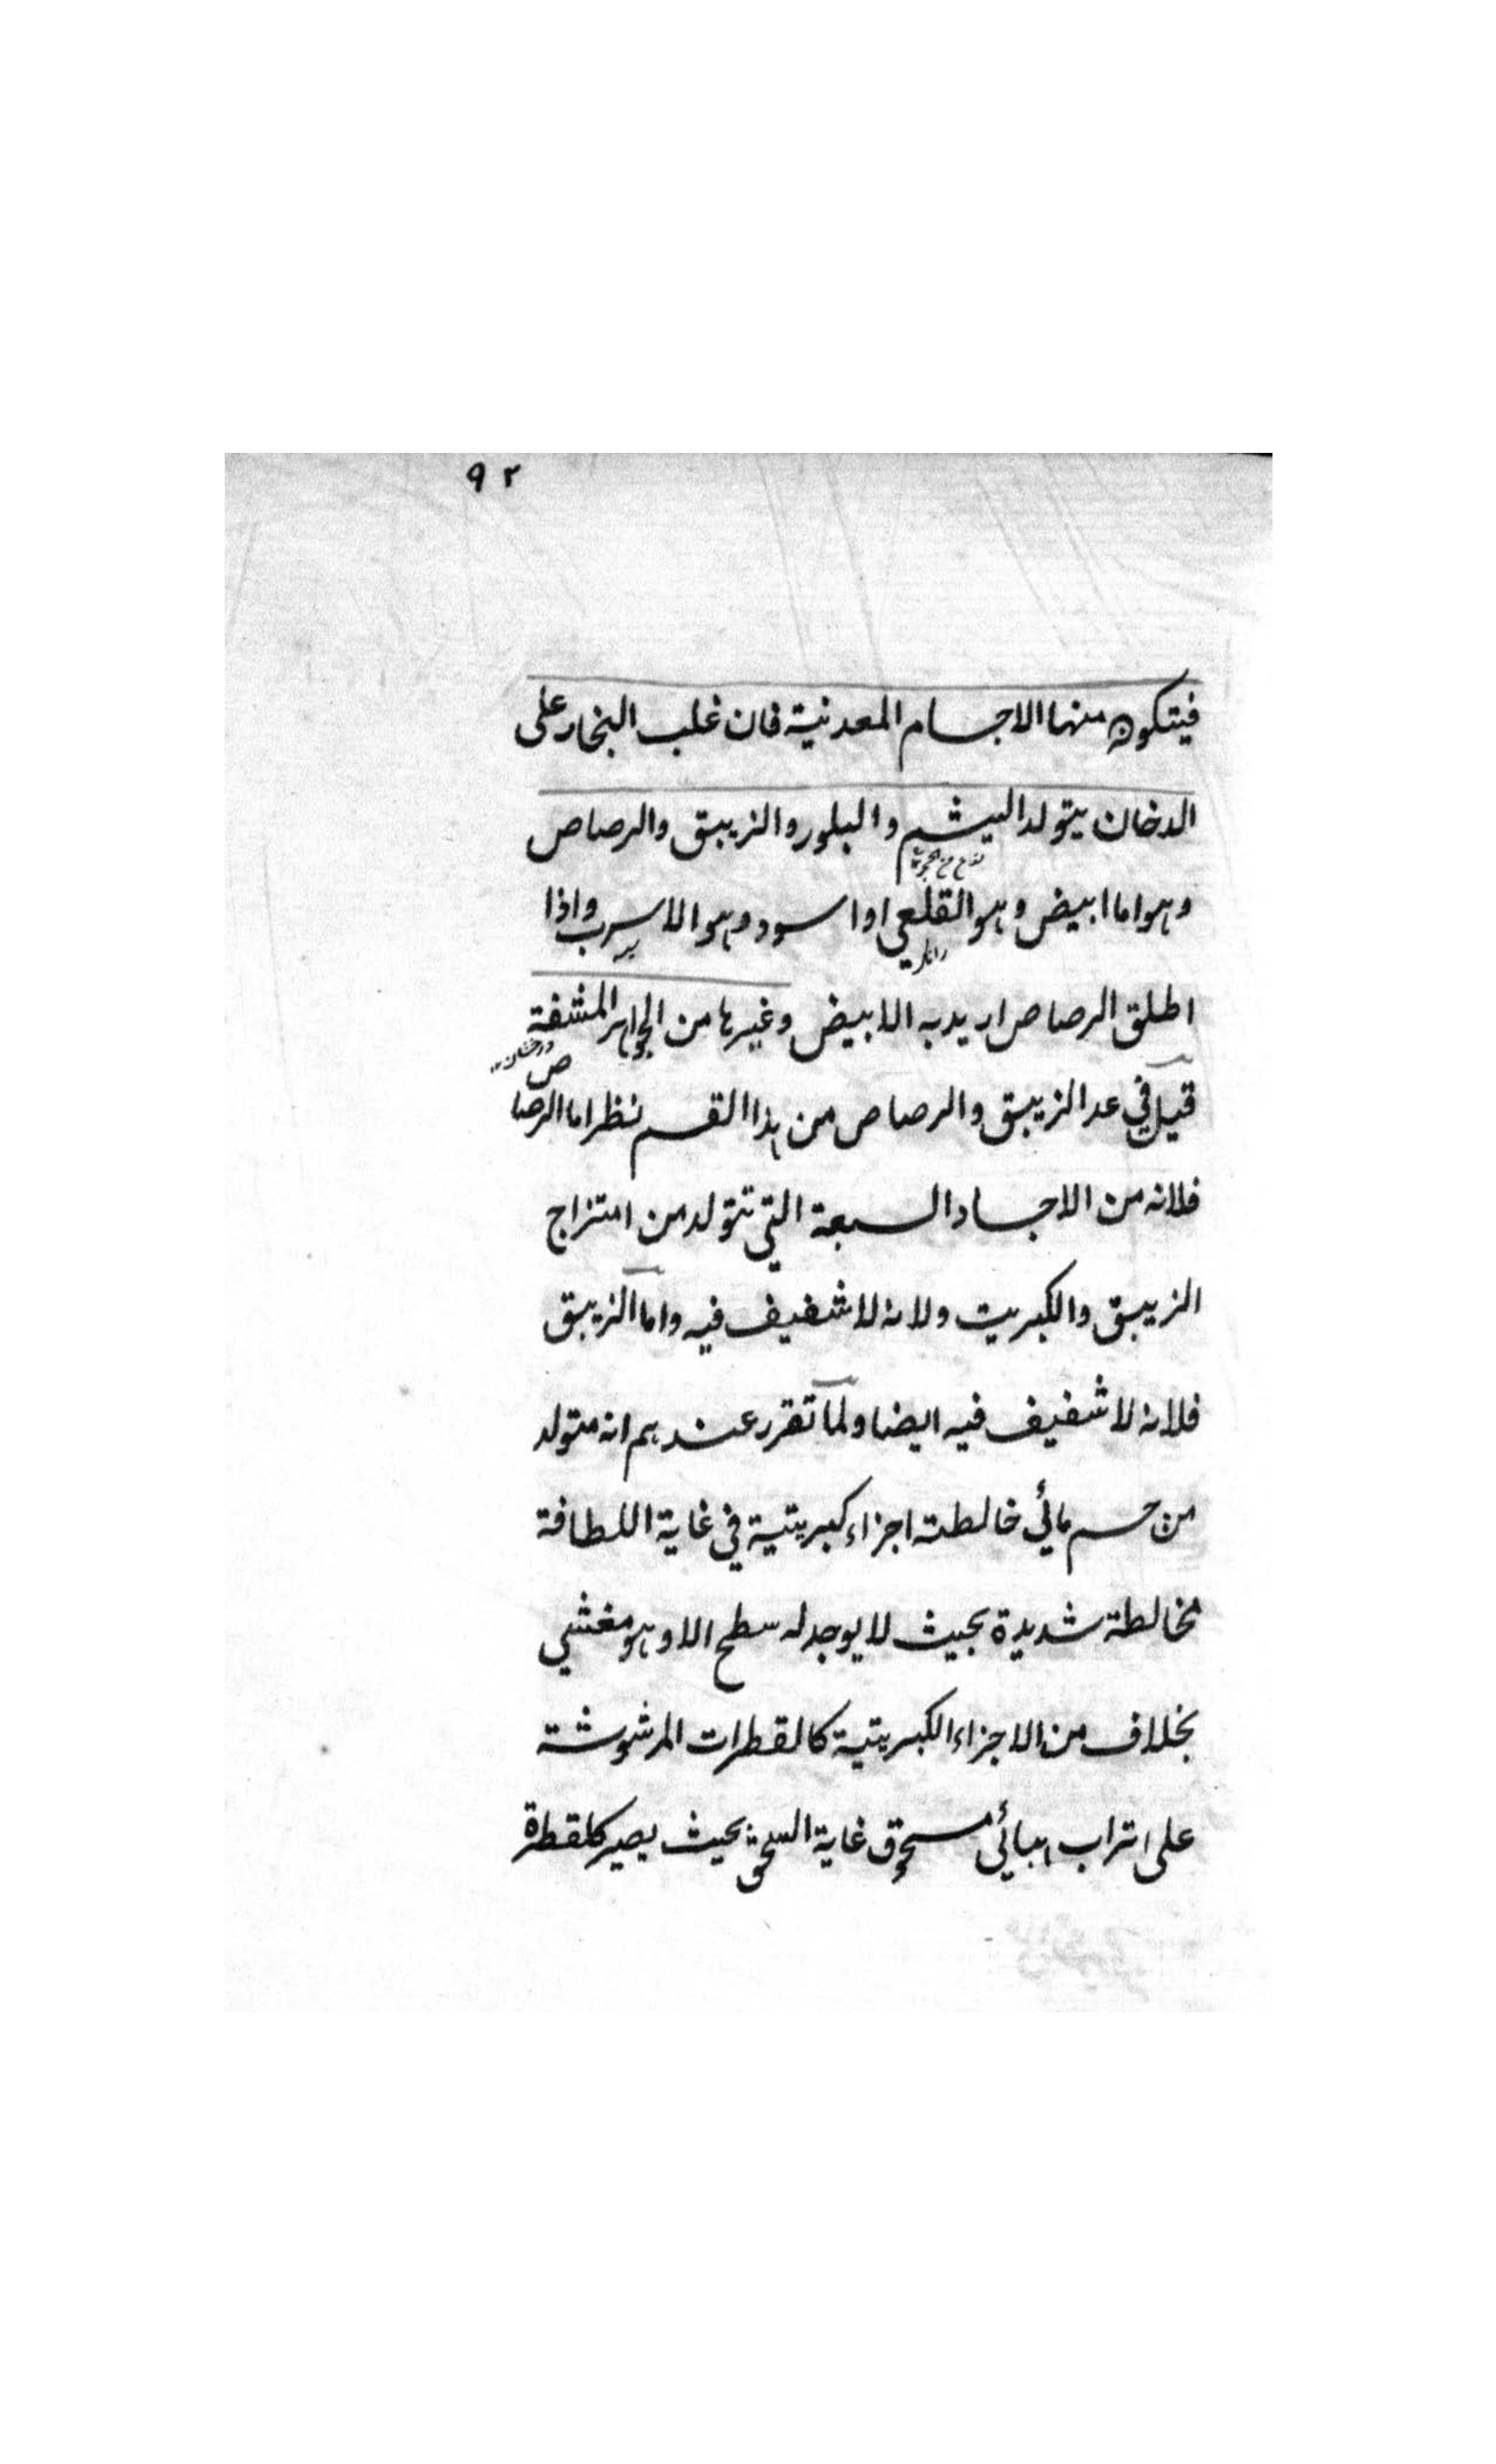 ٩٢
فيتكون منها الاجسام المعدنية فان غلب البخار على
الدخان يتولد اليشم والبلور والزيبق والرصاص
نوع من
وهو اما ابيض وهو القلعي او اسود وهو الاسرب واذا
اطلق الرصاص اريد به الابيض وغيرها من الجواهر المشفة
قيل في عد الزيبق والرصاص من هذا القسم نظر اما الرصاص
فلانه من الاجساد السبعة التي تتولد من امتزاج
الزيبق والكبريت ولانه لا شفيف فيه واما الزيبق
فلانه لا شفيف فيه ايضا ولما تقرر عندهم انه متولد
من جسم مائي خالطته اجزاء كبريتية في غاية اللطافة
مخالطة شديدة بحيث لا يوجد له سطح الا وهو مغشي
بخلاف من الاجزاء الكبريتية كالقطرات المرشوشة
على تراب هبائي مسحوق غاية السحق بحيث يصير كل قطرة